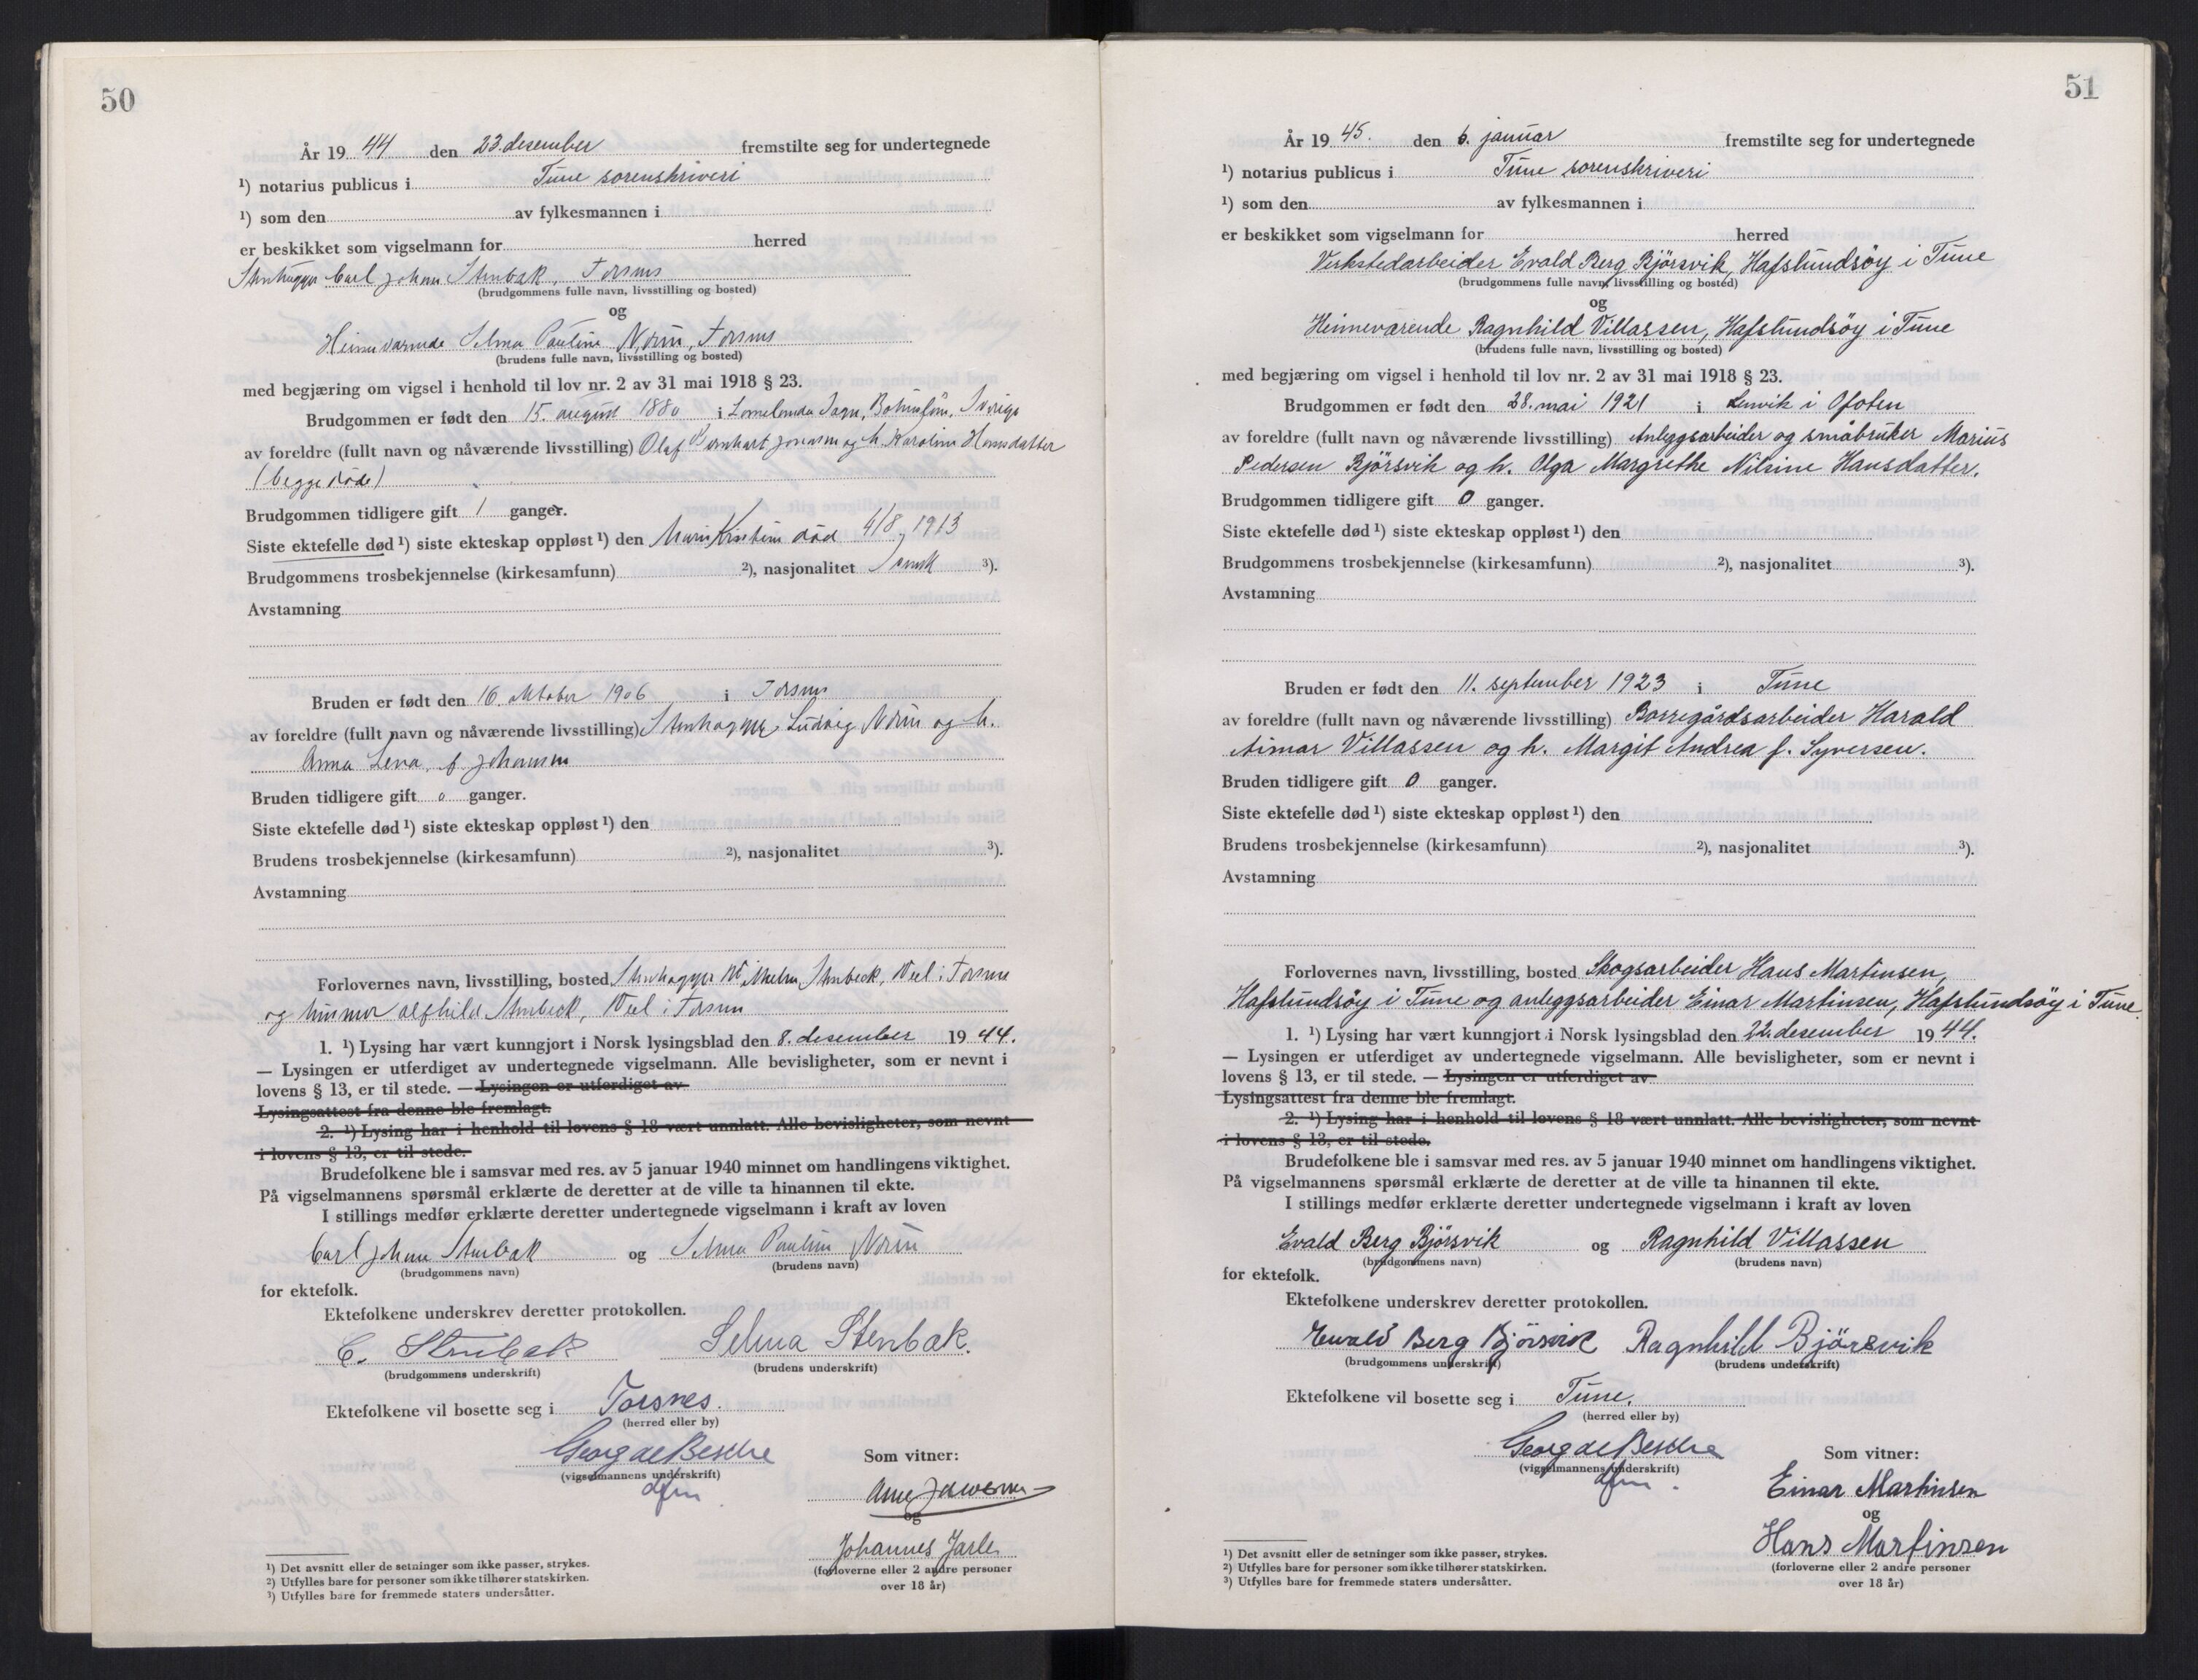 50
År 19 44 den 23. desember fremstilte seg for undertegnede
¹) notarius publicus i Tune sorenskriveri
¹) som den av fylkesmannen i
er beskikket som vigselmann for herred
Stenhugger Carl Johan Stenbak, Torsnes
(brudgommens fulle navn, livsstilling og bosted)
og
Heimeværende Selma Pauline Norin, Torsnes
(brudens fulle navn, livsstilling og bosted)
med begjæring om vigsel i henhold til lov nr. 2 av 31 mai 1918 § 23.
Brudgommen er født den 15. august 1880 i Sverige
av foreldre (fullt navn og nåværende livsstilling) Olaf Bernhart Jonassen og h. Karoline Hansdatter
(begge døde)
Brudgommen tidligere gift 1 ganger.
Siste ektefelle død ¹) siste ekteskap oppløst ¹) den død 4/8 1913
Brudgommens trosbekjennelse (kirkesamfunn) ²), nasjonalitet Svensk ³).
Avstamning
Bruden er født den 16. oktober 1906 i Torsnes
av foreldre (fullt navn og nåværende livsstilling) Stenhogger Ludvig Norin og h.
Anna Lena f. Johansen
Bruden tidligere gift 0 ganger.
Siste ektefelle død ¹) siste ekteskap oppløst ¹) den
Brudens trosbekjennelse (kirkesamfunn) ²), nasjonalitet ³).
Avstamning
Forlovernes navn, livsstilling, bosted Stenhogger Vilhelm Stenbeck, Vel i Torsnes
og husmor Alfhild Stenbeck, Vel i Torsnes
1. ¹) Lysing har vært kunngjort i Norsk lysingsblad den 8. desember 19 44.
— Lysingen er utferdiget av undertegnede vigselmann. Alle bevisligheter, som er nevnt i
lovens § 13, er til stede. — Lysingen er utferdiget av
Lysingsattest fra denne ble fremlagt.
2. ¹) Lysing har i henhold til lovens § 18 vært unnlatt. Alle bevisligheter, som nevnt
i lovens § 13, er til stede.
Brudefolkene ble i samsvar med res. av 5 januar 1940 minnet om handlingens viktighet.
På vigselmannens spørsmål erklærte de deretter at de ville ta hinannen til ekte.
I stillings medfør erklærte deretter undertegnede vigselmann i kraft av loven
Carl Johan Stenbak og Selma Pauline Norin
(brudgommens navn) (brudens navn)
for ektefolk.
Ektefolkene underskrev deretter protokollen.
C. Stenbak Selma Stenbak.
(brudgommens underskrift) (brudens underskrift)
Ektefolkene vil bosette seg i Torsnes.
(herred eller by)
Georg de Besche Som vitner:
(vigselmannens underskrift)
dfm
Arne
og
Johannes Jarle
(forloverne eller 2 andre personer
over 18 år)
¹) Det avsnitt eller de setninger som ikke passer, strykes.
²) Utfylles bare for personer som ikke tilhører statskirken.
³) Utfylles bare for fremmede staters undersåtter.
51
År 19 45. den 6. januar fremstilte seg for undertegnede
¹) notarius publicus i Tune sorenskriveri
¹) som den av fylkesmannen i
er beskikket som vigselmann for herred
Verkstedarbeider Evald Berg Bjørsvik, Hafslundsøy i Tune
(brudgommens fulle navn, livsstilling og bosted)
og
Heimeværende Ragnhild Villassen, Hafslundsøy i Tune
(brudens fulle navn, livsstilling og bosted)
med begjæring om vigsel i henhold til lov nr. 2 av 31 mai 1918 § 23.
Brudgommen er født den 28. mai 1921 i Lenvik i Ofoten
av foreldre (fullt navn og nåværende livsstilling) Anleggsarbeider og småbruker Marius
Pedersen Bjørsvik og h. Olga Margrethe Nilsine Hansdatter.
Brudgommen tidligere gift 0 ganger.
Siste ektefelle død ¹) siste ekteskap oppløst ¹) den
Brudgommens trosbekjennelse (kirkesamfunn) ²), nasjonalitet ³).
Avstamning
Bruden er født den 11. september 1923 i Tune
av foreldre (fullt navn og nåværende livsstilling) Borregårdsarbeider Harald
Aimar Villassen og h. Margit Andrea f. Syversen.
Bruden tidligere gift 0 ganger.
Siste ektefelle død ¹) siste ekteskap oppløst ¹) den
Brudens trosbekjennelse (kirkesamfunn) ²), nasjonalitet ³).
Avstamning
Forlovernes navn, livsstilling, bosted Skogsarbeider Hans Martinsen,
Hafslundsøy i Tune og anleggsarbeider Einar Martinsen, Hafslundsøy i Tune.
1. ¹) Lysing har vært kunngjort i Norsk lysingsblad den 22. desember 19 44.
— Lysingen er utferdiget av undertegnede vigselmann. Alle bevisligheter, som er nevnt i
lovens § 13, er til stede. — Lysingen er utferdiget av
Lysingsattest fra denne ble fremlagt.
2. ¹) Lysing har i henhold til lovens § 18 vært unnlatt. Alle bevisligheter, som nevnt
i lovens § 13, er til stede.
Brudefolkene ble i samsvar med res. av 5 januar 1940 minnet om handlingens viktighet.
På vigselmannens spørsmål erklærte de deretter at de ville ta hinannen til ekte.
I stillings medfør erklærte deretter undertegnede vigselmann i kraft av loven
Evald Berg Bjørsvik og Ragnhild Villassen
(brudgommens navn) (brudens navn)
for ektefolk.
Ektefolkene underskrev deretter protokollen.
Ewald Berg Bjørsvik Ragnhild Bjørsvik
(brudgommens underskrift) (brudens underskrift)
Ektefolkene vil bosette seg i Tune.
(herred eller by)
Georg de Besche Som vitner:
(vigselmannens underskrift)
dfm.
Einar Martinsen
og
Hans Martinsen
(forloverne eller 2 andre personer
over 18 år)
¹) Det avsnitt eller de setninger som ikke passer, strykes.
²) Utfylles bare for personer som ikke tilhører statskirken.
³) Utfylles bare for fremmede staters undersåtter.